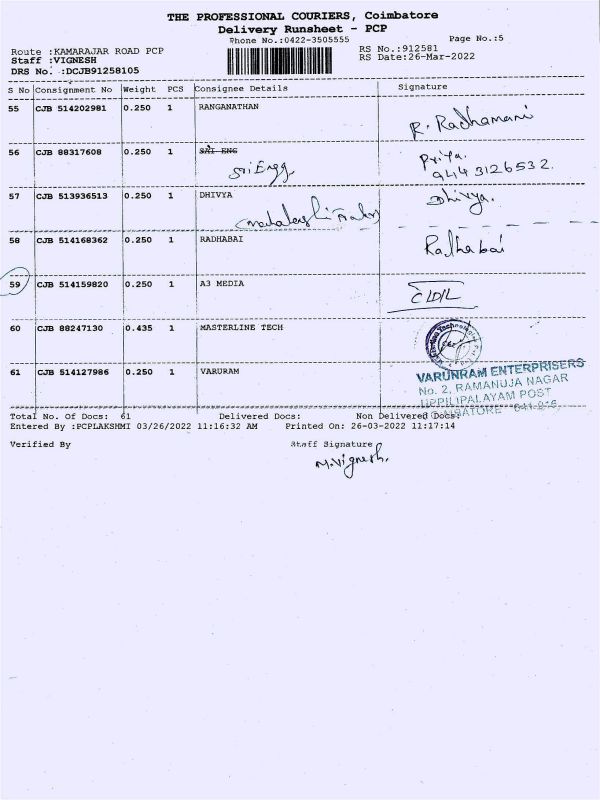 THE PROFESSIONAL COURIERS, Coimbatore
Delivery Runsheet - PCP
Phone No.:0422-3505555 Page No.:5
Route :KAMARAJAR ROAD PCP RS No.:912581
Staff :VIGNESH RS Date:26-Mar-2022
DRS No. :DCJB91258105
S No Consignment No Weight PCS Consignee Details Signature
55 CJB 514202981 0.250 1 RANGANATHAN R. Radhamani
56 CJB 88317608 0.250 1 SAI ENG Priya.
Sri Engg, 9443126532.
57 CJB 513936513 0.250 1 DHIVYA Dhivya.
58 CJB 514168362 0.250 1 RADHABAI Radhabai
59 CJB 514159820 0.250 1 A3 MEDIA
60 CJB 88247130 0.435 1 MASTERLINE TECH
61 CJB 514127986 0.250 1 VARURAM
VARUNRAM ENTERPRISERS
No. 2, RAMANUJA NAGAR
UPPILIPALAYAM POST
Total No. Of Docs: 61 Delivered Docs: Non Delivered Docs:
COIMBATORE - 641 015,
Entered By :PCPLAKSHMI 03/26/2022 11:16:32 AM Printed On: 26-03-2022 11:17:14
Verified By Staff Signature
M.Vignesh.